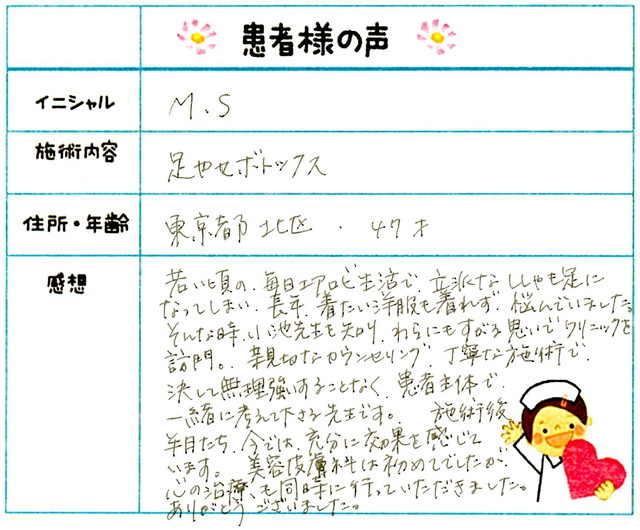 患者様の声
イニシャル M.S
施術内容 足やせボトックス
住所・年齢 東京都北区 . 47才
感想
若い頃の、毎日エアロビ生活で、立派なししゃも足に
なってしまい、長年、着たい洋服も着れず、悩んでいました。
そんな時、小池先生を知り、わらにもすがる思いでクリニックを
訪問。 親切なカウンセリング、丁寧な施術で、
決して無理強いすることなく、患者主体で
一緒に考えて下さる先生です。 施術後
半月たち、今では、充分に効果を感じて
います。 美容皮膚科は初めてでしたが、
心の治療も同時に行っていただきました。
ありがとうございました。